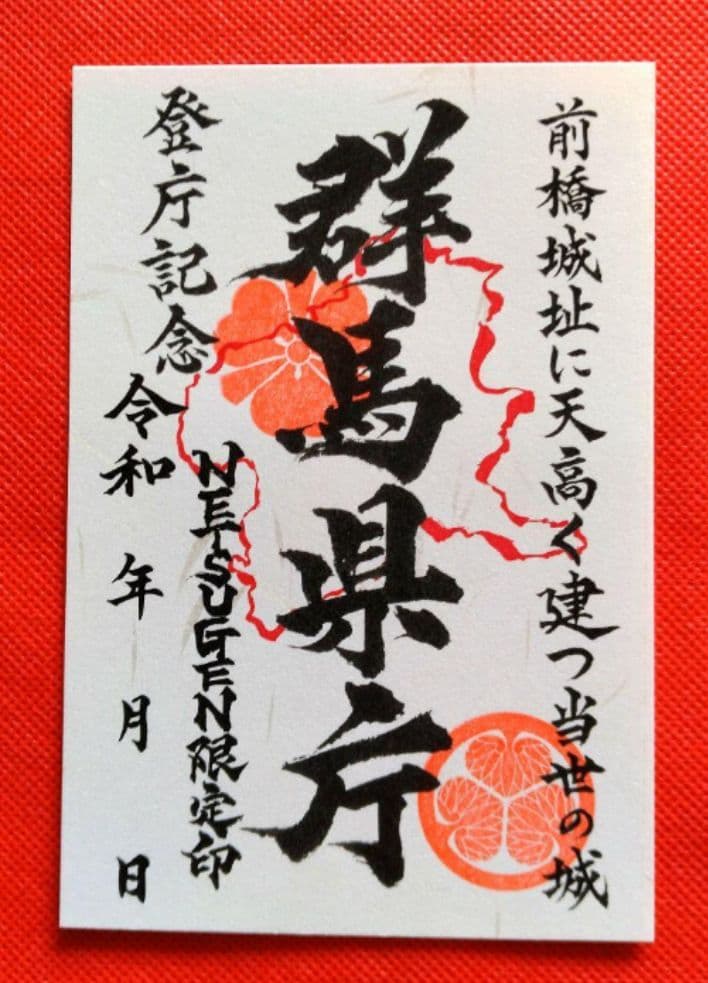 前橋城址に天高く建つ当世の城
群馬県庁
登庁記念
NETSUGEN限定印
令和 年 月 日